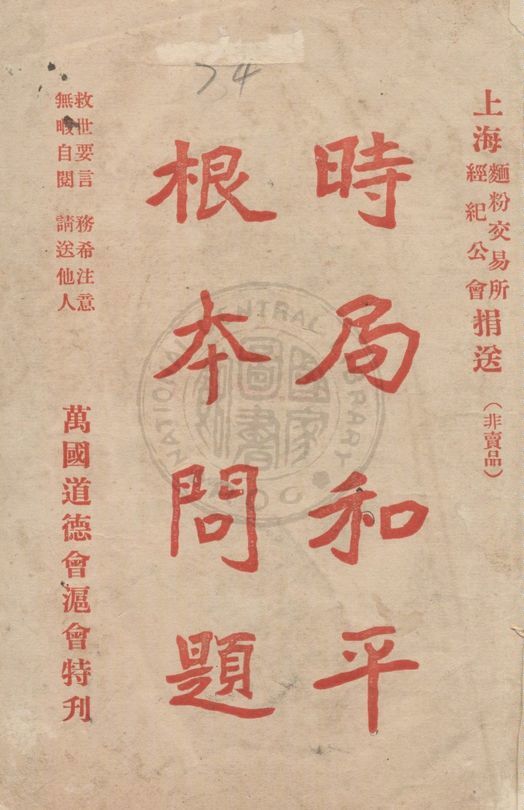 上海麵粉交易所經紀公會捐送(非賣品)
時局和平
根本問題
救世要言 務希注意
無暇自閱 請送他人
萬國道德會滬會特刊
74
NATIONAL LIBRARY
國家圖書館